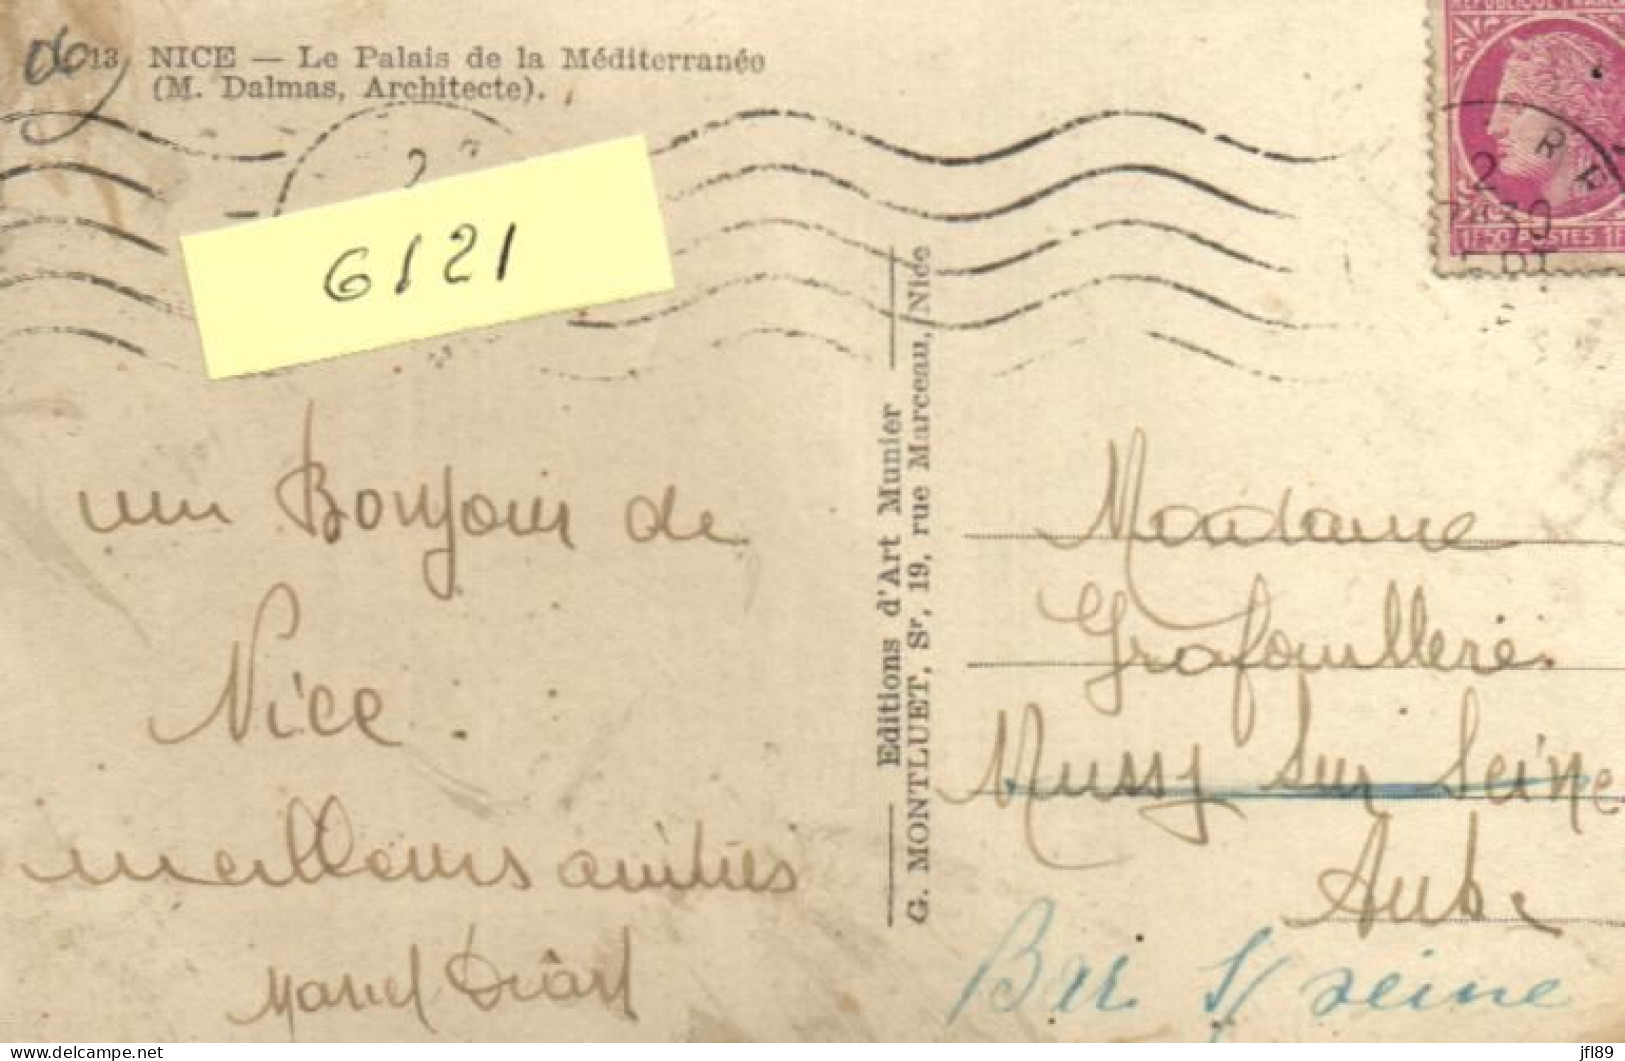 06
13 NICE — Le Palais de la Méditerranée
(M. Dalmas, Architecte).
6121
RÉPUBLIQUE FRANÇ
2
1F50 POSTES 1F
un Bonjour de
Nice.
meilleurs amitiés
Marcel
Editions d'Art Munier
G. MONTLUET, Sr, 19, rue Marceau, Nice
Madame
Mussy sur Seine
Aube
Bar s/ seine
jfl89